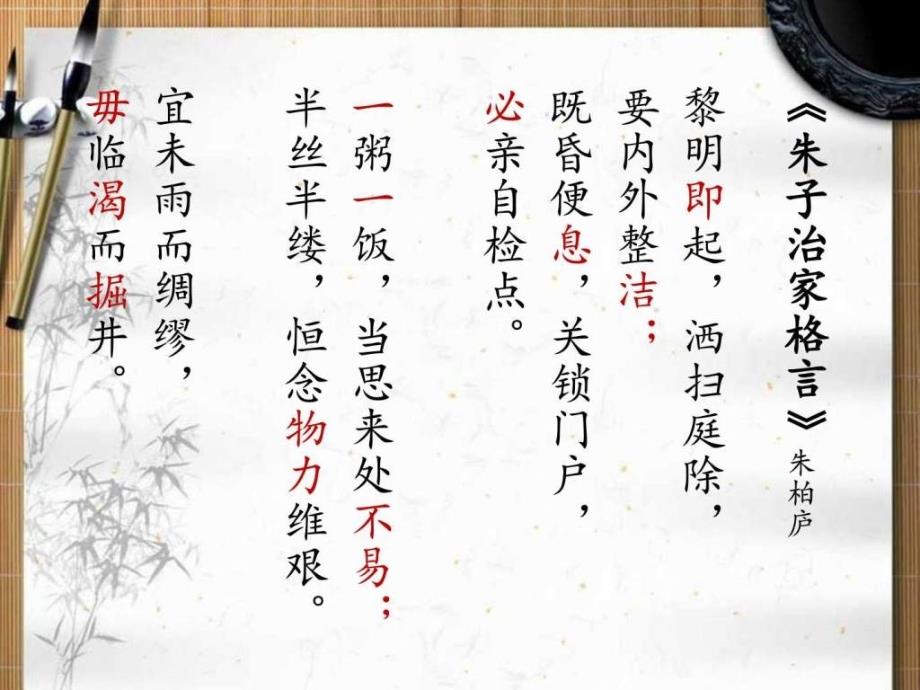 《朱子治家格言》朱柏庐
黎明即起，洒扫庭除，
要内外整洁；
既昏便息，关锁门户，
必亲自检点。
一粥一饭，当思来处不易；
半丝半缕，恒念物力维艰。
宜未雨而绸缪，
毋临渴而掘井。